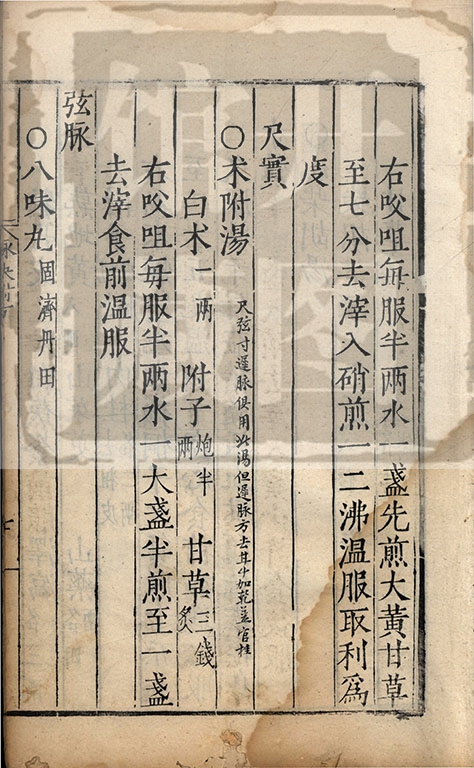 右㕮咀每服半两水一盞先煎大黄甘草
至七分去滓入硝煎一二沸温服取利爲
度
尺實
〇术附湯
尺弦寸遲脉俱用此湯但遲脉方去甘草加乾姜官桂
白术一两 附子炮半两 甘草三錢炙
右㕮咀每服半两水一大盞半煎至一盞
去滓食前温服
弦脉
〇八味丸固濟丹田